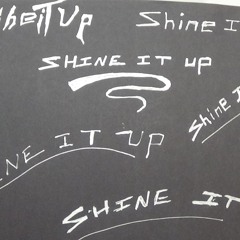 Up
Shine I
SHINE IT UP
Shine I
INE IT UP
SHINE IT